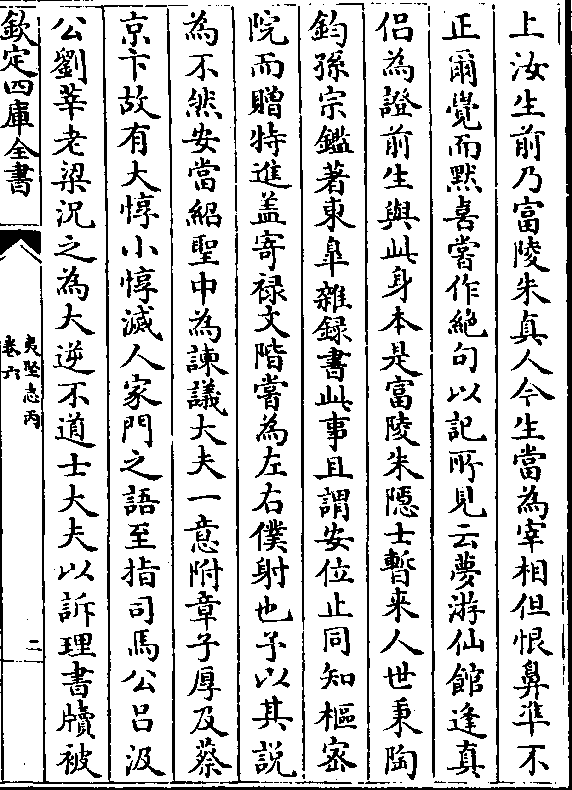 上汝生前乃富陵朱真人今生當為宰相但恨鼻準不
正爾覺而默喜嘗作絶句以記所見云夢游仙館逢真
侣為證前生與此身本是富陵朱隠士暫來人世秉陶
鈞孫宗鑑著東臯雜録書此事且謂安位止同知樞密
院而贈特進盖寄禄文階嘗為左右僕射也予以其説
為不然安當紹聖中為諫議大夫一意附章子厚及蔡
京卞故有大惇小惇滅人家門之語至指司馬公吕汲
公劉莘老梁況之為大逆不道士大夫以訴理書牘被
欽定四庫全書
夷堅志丙
卷六
二